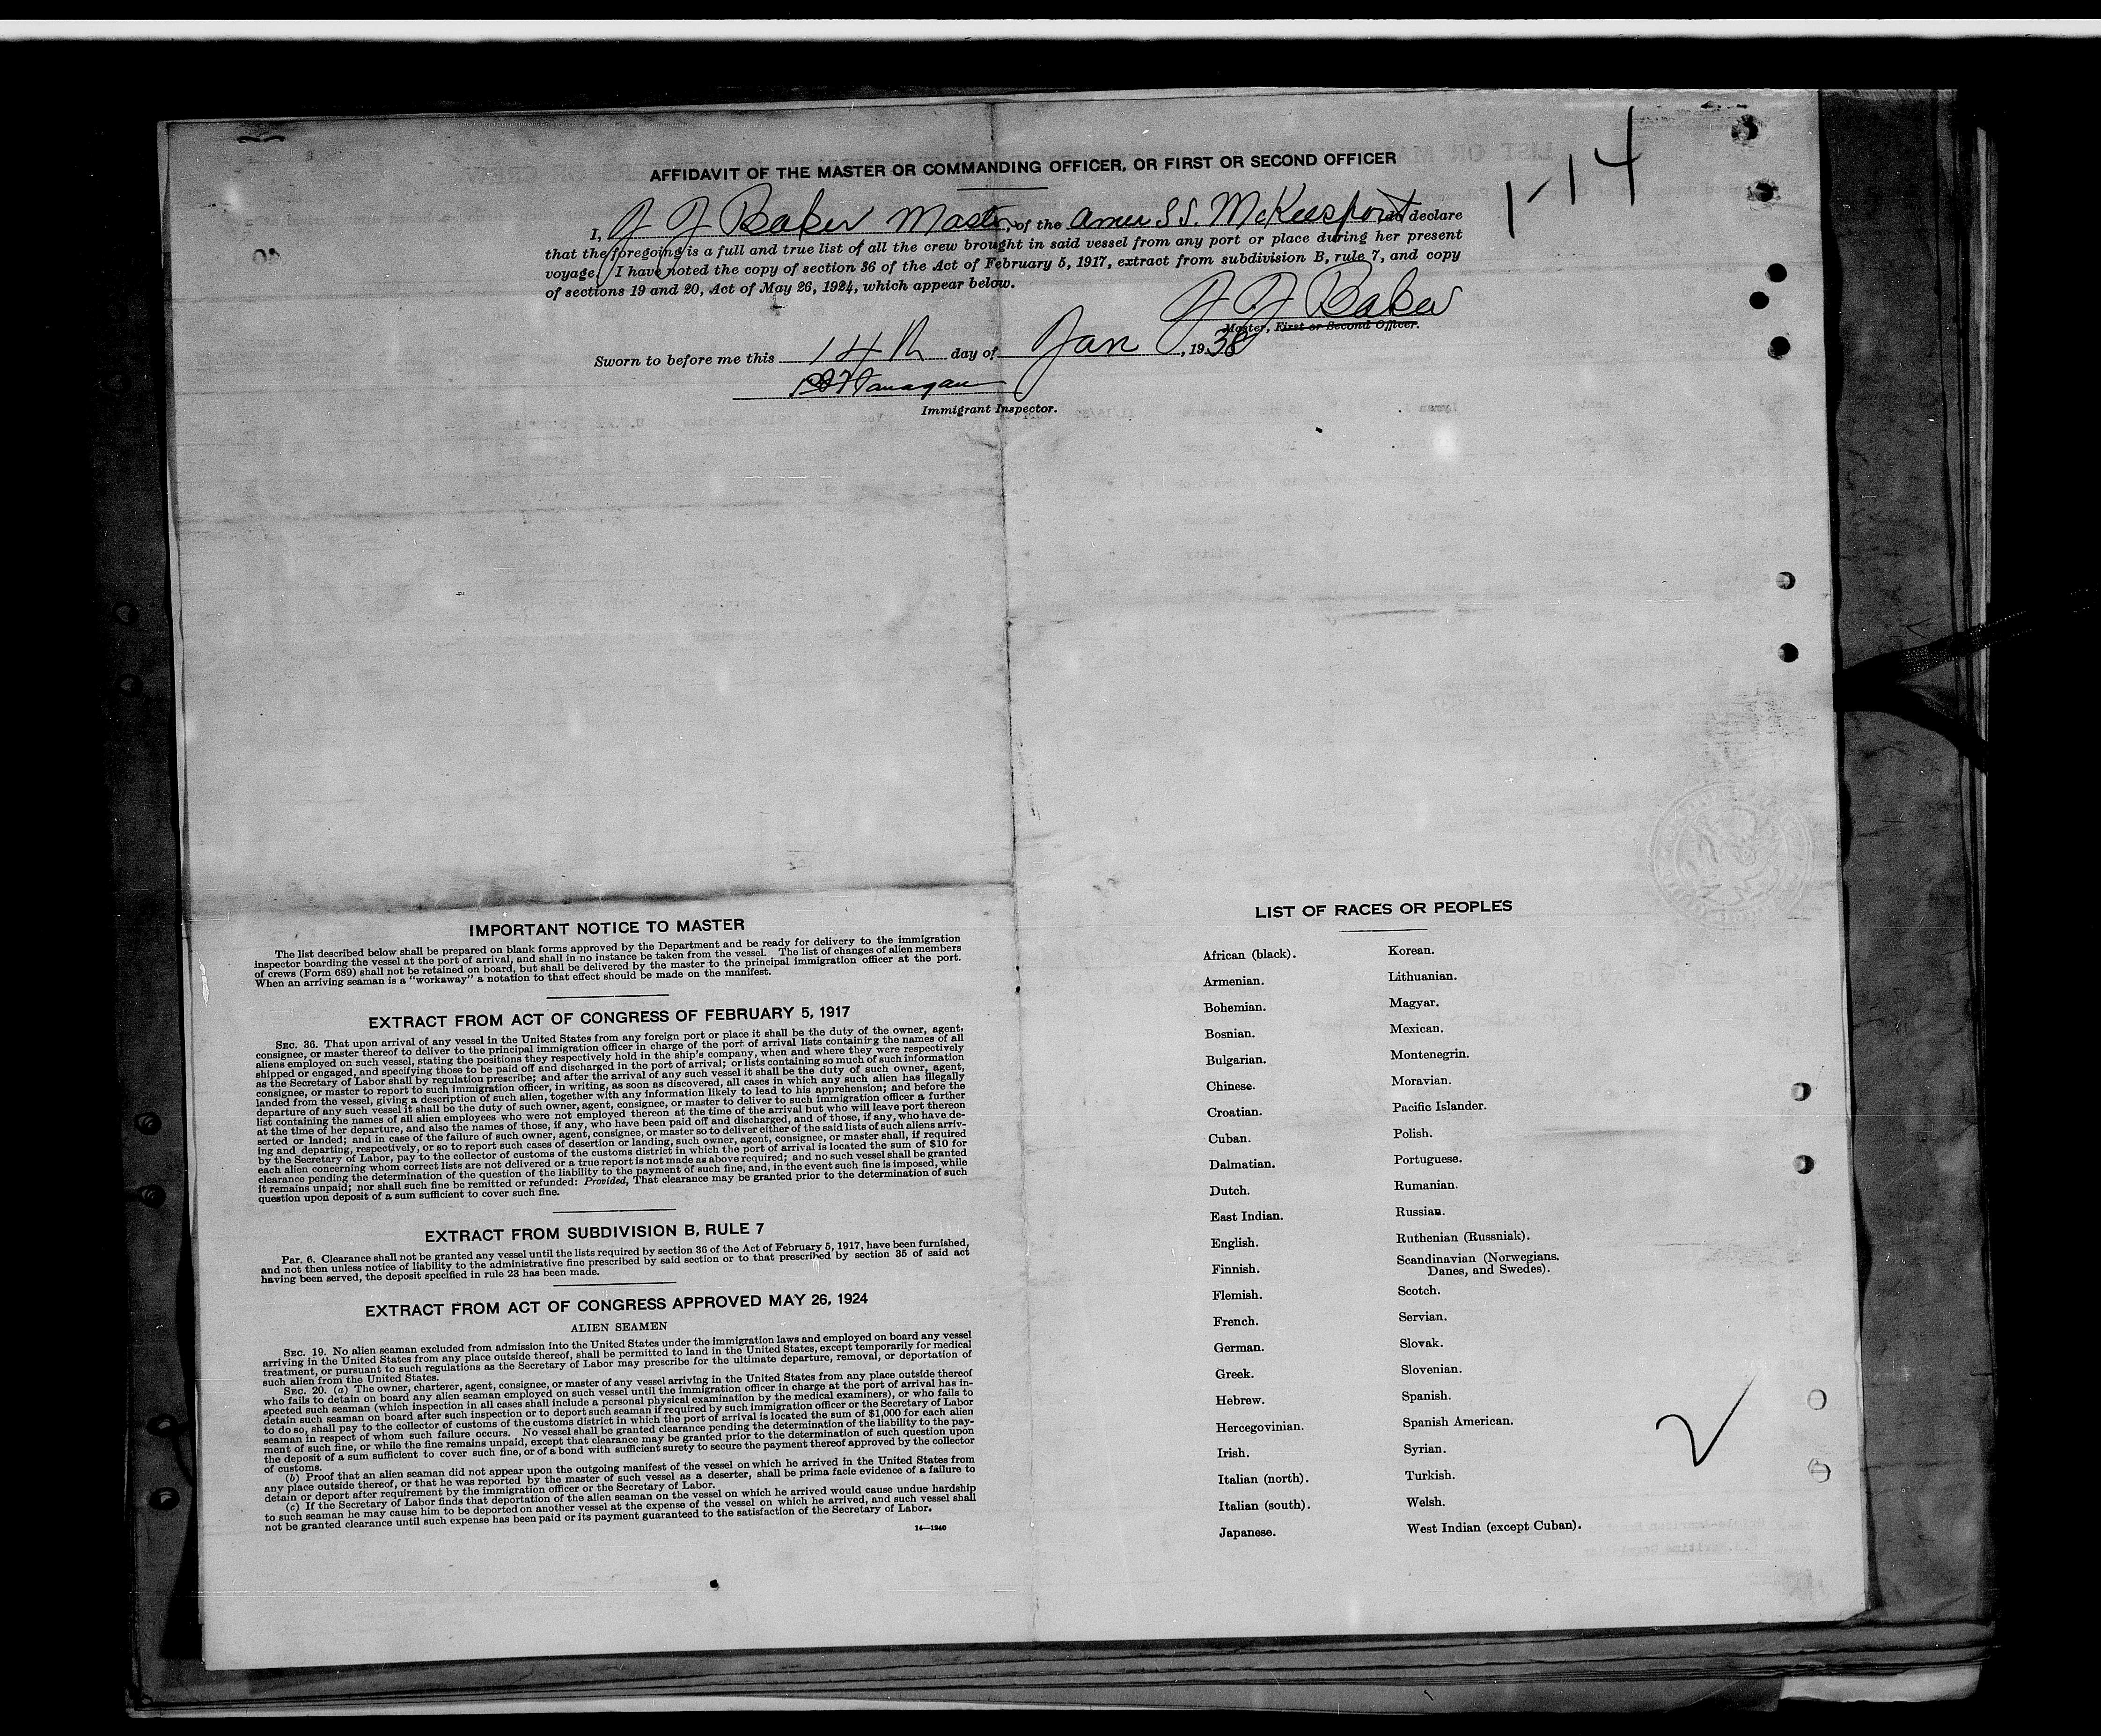 1-14
AFFIDAVIT OF THE MASTER OR COMMANDING OFFICER, OR FIRST OR SECOND OFFICER
I, J J Baker Master, of the Amer S S. McKeesport do declare
that the foregoing is a full and true list of all the crew brought in said vessel from any port or place during her present
voyage. I have noted the copy of section 36 of the Act of February 5, 1917, extract from subdivision B, rule 7, and copy
of sections 19 and 20, Act of May 26, 1924, which appear below.
J J Baker
Master, First or Second Officer.
Sworn to before me this 14th day of Jan, 1938
Immigrant Inspector.
IMPORTANT NOTICE TO MASTER
The list described below shall be prepared on blank forms approved by the Department and be ready for delivery to the immigration
inspector boarding the vessel at the port of arrival, and shall in no instance be taken from the vessel. The list of changes of alien members
of crews (Form 689) shall not be retained on board, but shall be delivered by the master to the principal immigration officer at the port.
When an arriving seaman is a "workaway" a notation to that effect should be made on the manifest.
EXTRACT FROM ACT OF CONGRESS OF FEBRUARY 5, 1917
SEC. 36. That upon arrival of any vessel in the United States from any foreign port or place it shall be the duty of the owner, agent,
consignee, or master thereof to deliver to the principal immigration officer in charge of the port of arrival lists containing the names of all
aliens employed on such vessel, stating the positions they respectively hold in the ship's company, when and where they were respectively
shipped or engaged, and specifying those to be paid off and discharged in the port of arrival; or lists containing so much of such information
as the Secretary of Labor shall by regulation prescribe; and after the arrival of any such vessel it shall be the duty of such owner, agent,
consignee, or master to report to such immigration officer, in writing, as soon as discovered, all cases in which any such alien has illegally
landed from the vessel, giving a description of such alien, together with any information likely to lead to his apprehension; and before the
departure of any such vessel it shall be the duty of such owner, agent, consignee, or master to deliver to such immigration officer a further
list containing the names of all alien employees who were not employed thereon at the time of the arrival but who will leave port thereon
at the time of her departure, and also the names of those, if any, who have been paid off and discharged, and of those, if any, who have de-
serted or landed; and in case of the failure of such owner, agent, consignee, or master so to deliver either of the said lists of such aliens arriv-
ing and departing, respectively, or so to report such cases of desertion or landing, such owner, agent, consignee, or master shall, if required
by the Secretary of Labor, pay to the collector of customs of the customs district in which the port of arrival is located the sum of $10 for
each alien concerning whom correct lists are not delivered or a true report is not made as above required; and no such vessel shall be granted
clearance pending the determination of the question of the liability to the payment of such fine, and, in the event such fine is imposed, while
it remains unpaid; nor shall such fine be remitted or refunded: Provided, That clearance may be granted prior to the determination of such
question upon deposit of a sum sufficient to cover such fine.
EXTRACT FROM SUBDIVISION B, RULE 7
PAR. 6. Clearance shall not be granted any vessel until the lists required by section 36 of the Act of February 5, 1917, have been furnished,
and not then unless notice of liability to the administrative fine prescribed by said section or to that prescribed by section 35 of said act
having been served, the deposit specified in rule 23 has been made.
EXTRACT FROM ACT OF CONGRESS APPROVED MAY 26, 1924
ALIEN SEAMEN
SEC. 19. No alien seaman excluded from admission into the United States under the immigration laws and employed on board any vessel
arriving in the United States from any place outside thereof, shall be permitted to land in the United States, except temporarily for medical
treatment, or pursuant to such regulations as the Secretary of Labor may prescribe for the ultimate departure, removal, or deportation of
such alien from the United States.
SEC. 20. (a) The owner, charterer, agent, consignee, or master of any vessel arriving in the United States from any place outside thereof
who fails to detain on board any alien seaman employed on such vessel until the immigration officer in charge at the port of arrival has in-
spected such seaman (which inspection in all cases shall include a personal physical examination by the medical examiners), or who fails to
detain such seaman on board after such inspection or to deport such seaman if required by such immigration officer or the Secretary of Labor
to do so, shall pay to the collector of customs of the customs district in which the port of arrival is located the sum of $1,000 for each alien
seaman in respect of whom such failure occurs. No vessel shall be granted clearance pending the determination of the liability to the pay-
ment of such fine, or while the fine remains unpaid, except that clearance may be granted prior to the determination of such question upon
the deposit of a sum sufficient to cover such fine, or of a bond with sufficient surety to secure the payment thereof approved by the collector
of customs.
(b) Proof that an alien seaman did not appear upon the outgoing manifest of the vessel on which he arrived in the United States from
any place outside thereof, or that he was reported by the master of such vessel as a deserter, shall be prima facie evidence of a failure to
detain or deport after requirement by the immigration officer or the Secretary of Labor.
(c) If the Secretary of Labor finds that deportation of the alien seaman on the vessel on which he arrived would cause undue hardship
to such seaman he may cause him to be deported on another vessel at the expense of the vessel on which he arrived, and such vessel shall
not be granted clearance until such expense has been paid or its payment guaranteed to the satisfaction of the Secretary of Labor.
14—1240
LIST OF RACES OR PEOPLES
African (black).
Armenian.
Bohemian.
Bosnian.
Bulgarian.
Chinese.
Croatian.
Cuban.
Dalmatian.
Dutch.
East Indian.
English.
Finnish.
Flemish.
French.
German.
Greek.
Hebrew.
Hercegovinian.
Irish.
Italian (north).
Italian (south).
Japanese.
Korean.
Lithuanian.
Magyar.
Mexican.
Montenegrin.
Moravian.
Pacific Islander.
Polish.
Portuguese.
Rumanian.
Russian.
Ruthenian (Russniak).
Scandinavian (Norwegians,
Danes, and Swedes).
Scotch.
Servian.
Slovak.
Slovenian.
Spanish.
Spanish American.
Syrian.
Turkish.
Welsh.
West Indian (except Cuban).